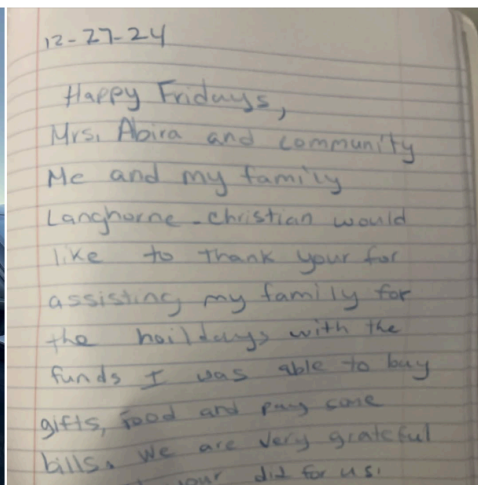 12-27-24
Happy Fridays,
Mrs. Abira and community
Me and my family
Langhorne-christian would
like to thank your for
assisting my family for
the haildays with the
funds I was able to buy
gifts, food and pay some
bills. We are very grateful
your did for us.